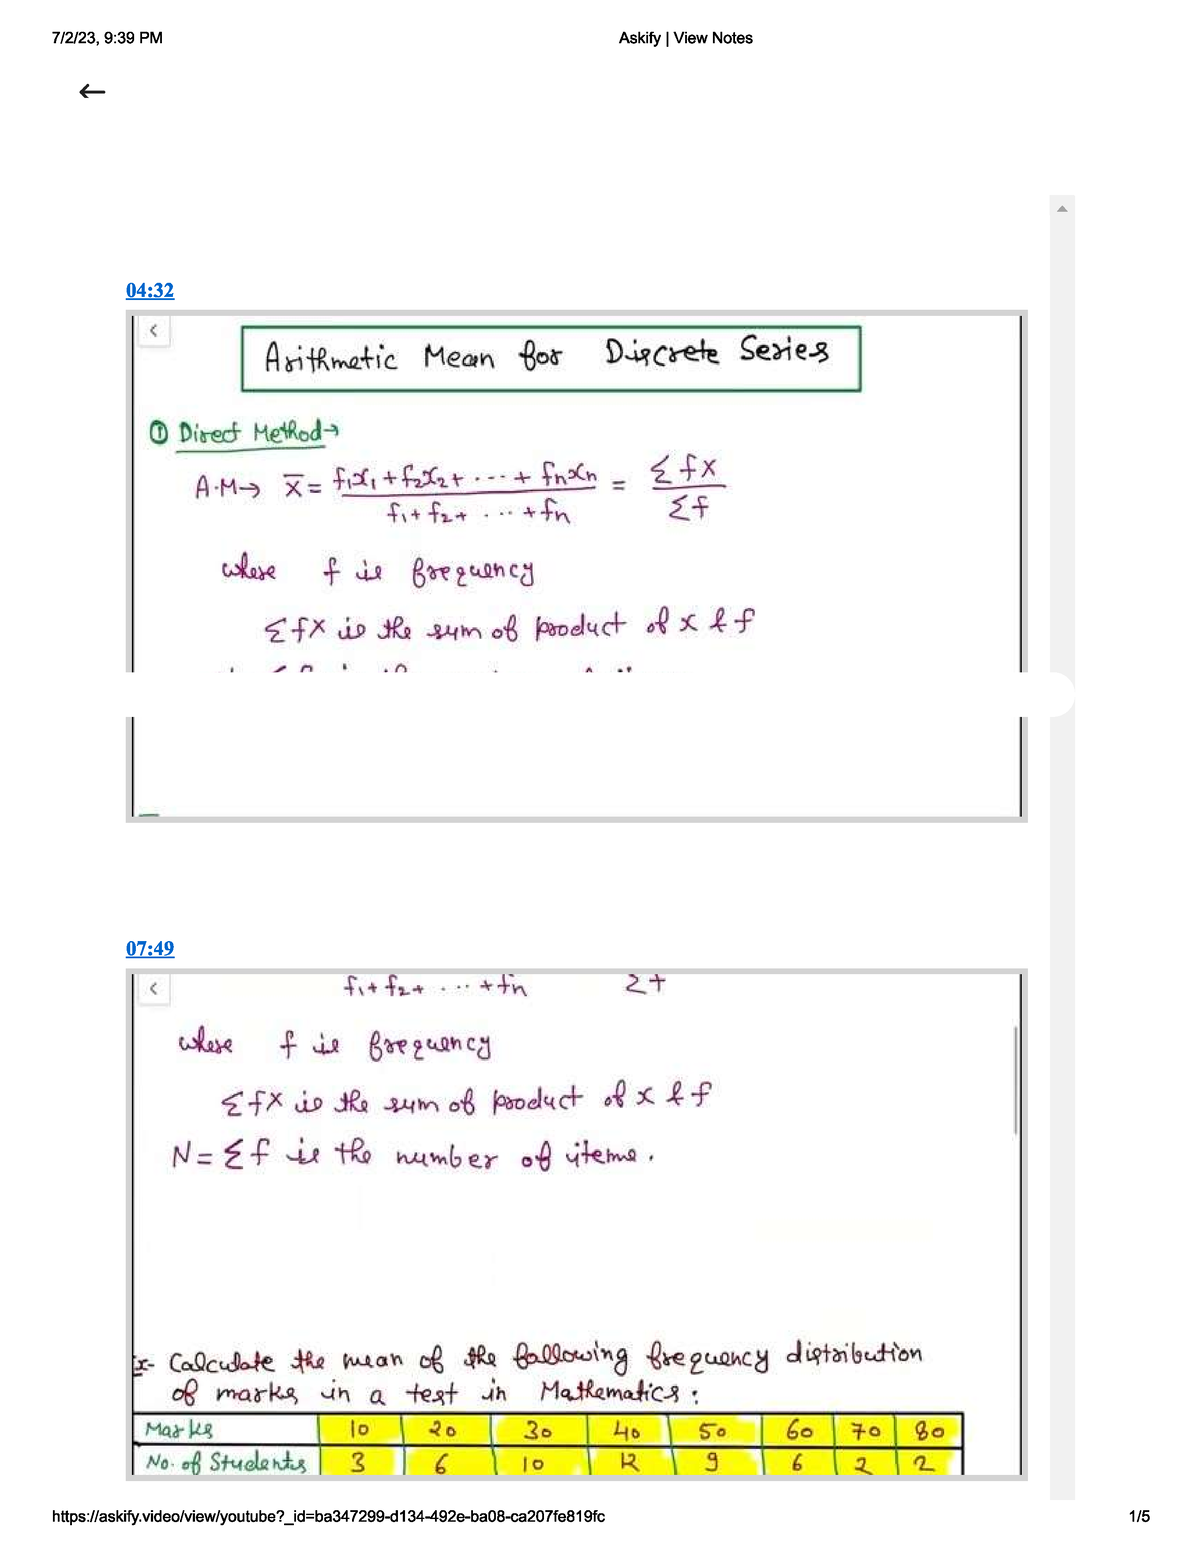 7/2/23, 9:39 PM
Askify | View Notes
04:32
Arithmetic Mean for Discrete Series
① Direct Method→
A.M→ x̄ = f₁x₁ + f₂x₂ + ... + fₙxₙ / f₁ + f₂ + ... + fₙ = Σfx / Σf
where f is frequency
Σfx is the sum of product of x & f
07:49
f₁ + f₂ + ... + fₙ Σf
where f is frequency
Σfx is the sum of product of x & f
N = Σf is the number of items.
Ex- Calculate the mean of the following frequency distribution
of marks in a test in Mathematics :
Marks 10 20 30 40 50 60 70 80
No. of Students 3 6 10 12 9 6 2 2
https://askify.video/view/youtube?_id=ba347299-d134-492e-ba08-ca207fe819fc
1/5